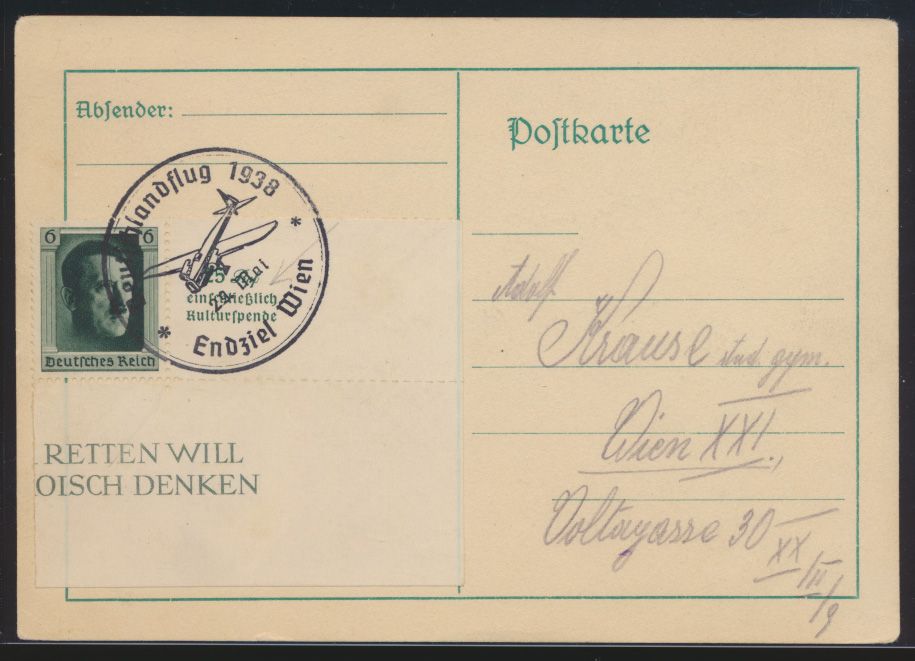 Absender:
Postkarte
Deutschlandflug 1938
* Endziel Wien *
29. Mai
6 6
Deutsches Reich
25
einschließlich
Kulturspende
RETTEN WILL
OISCH DENKEN
Adolf
Krause stud. gym.
Wien XXI.,
Voltagasse 30
XX
/III
/9